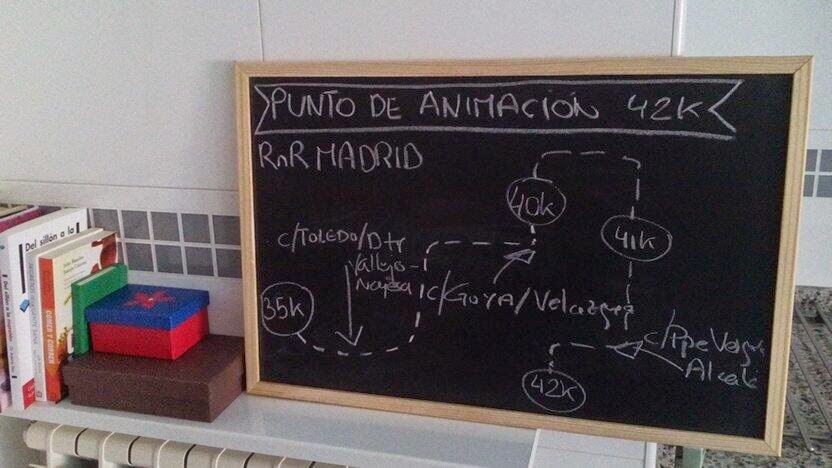 PUNTO DE ANIMACIÓN 42K
RnR MADRID
40K
41K
C/TOLEDO/Dtr
Vallejo-
Najera
35K
C/GOYA/Velazquez
C/Ppe Verga
Alcalá
42K
Del sillón a la
COMER Y CORRER